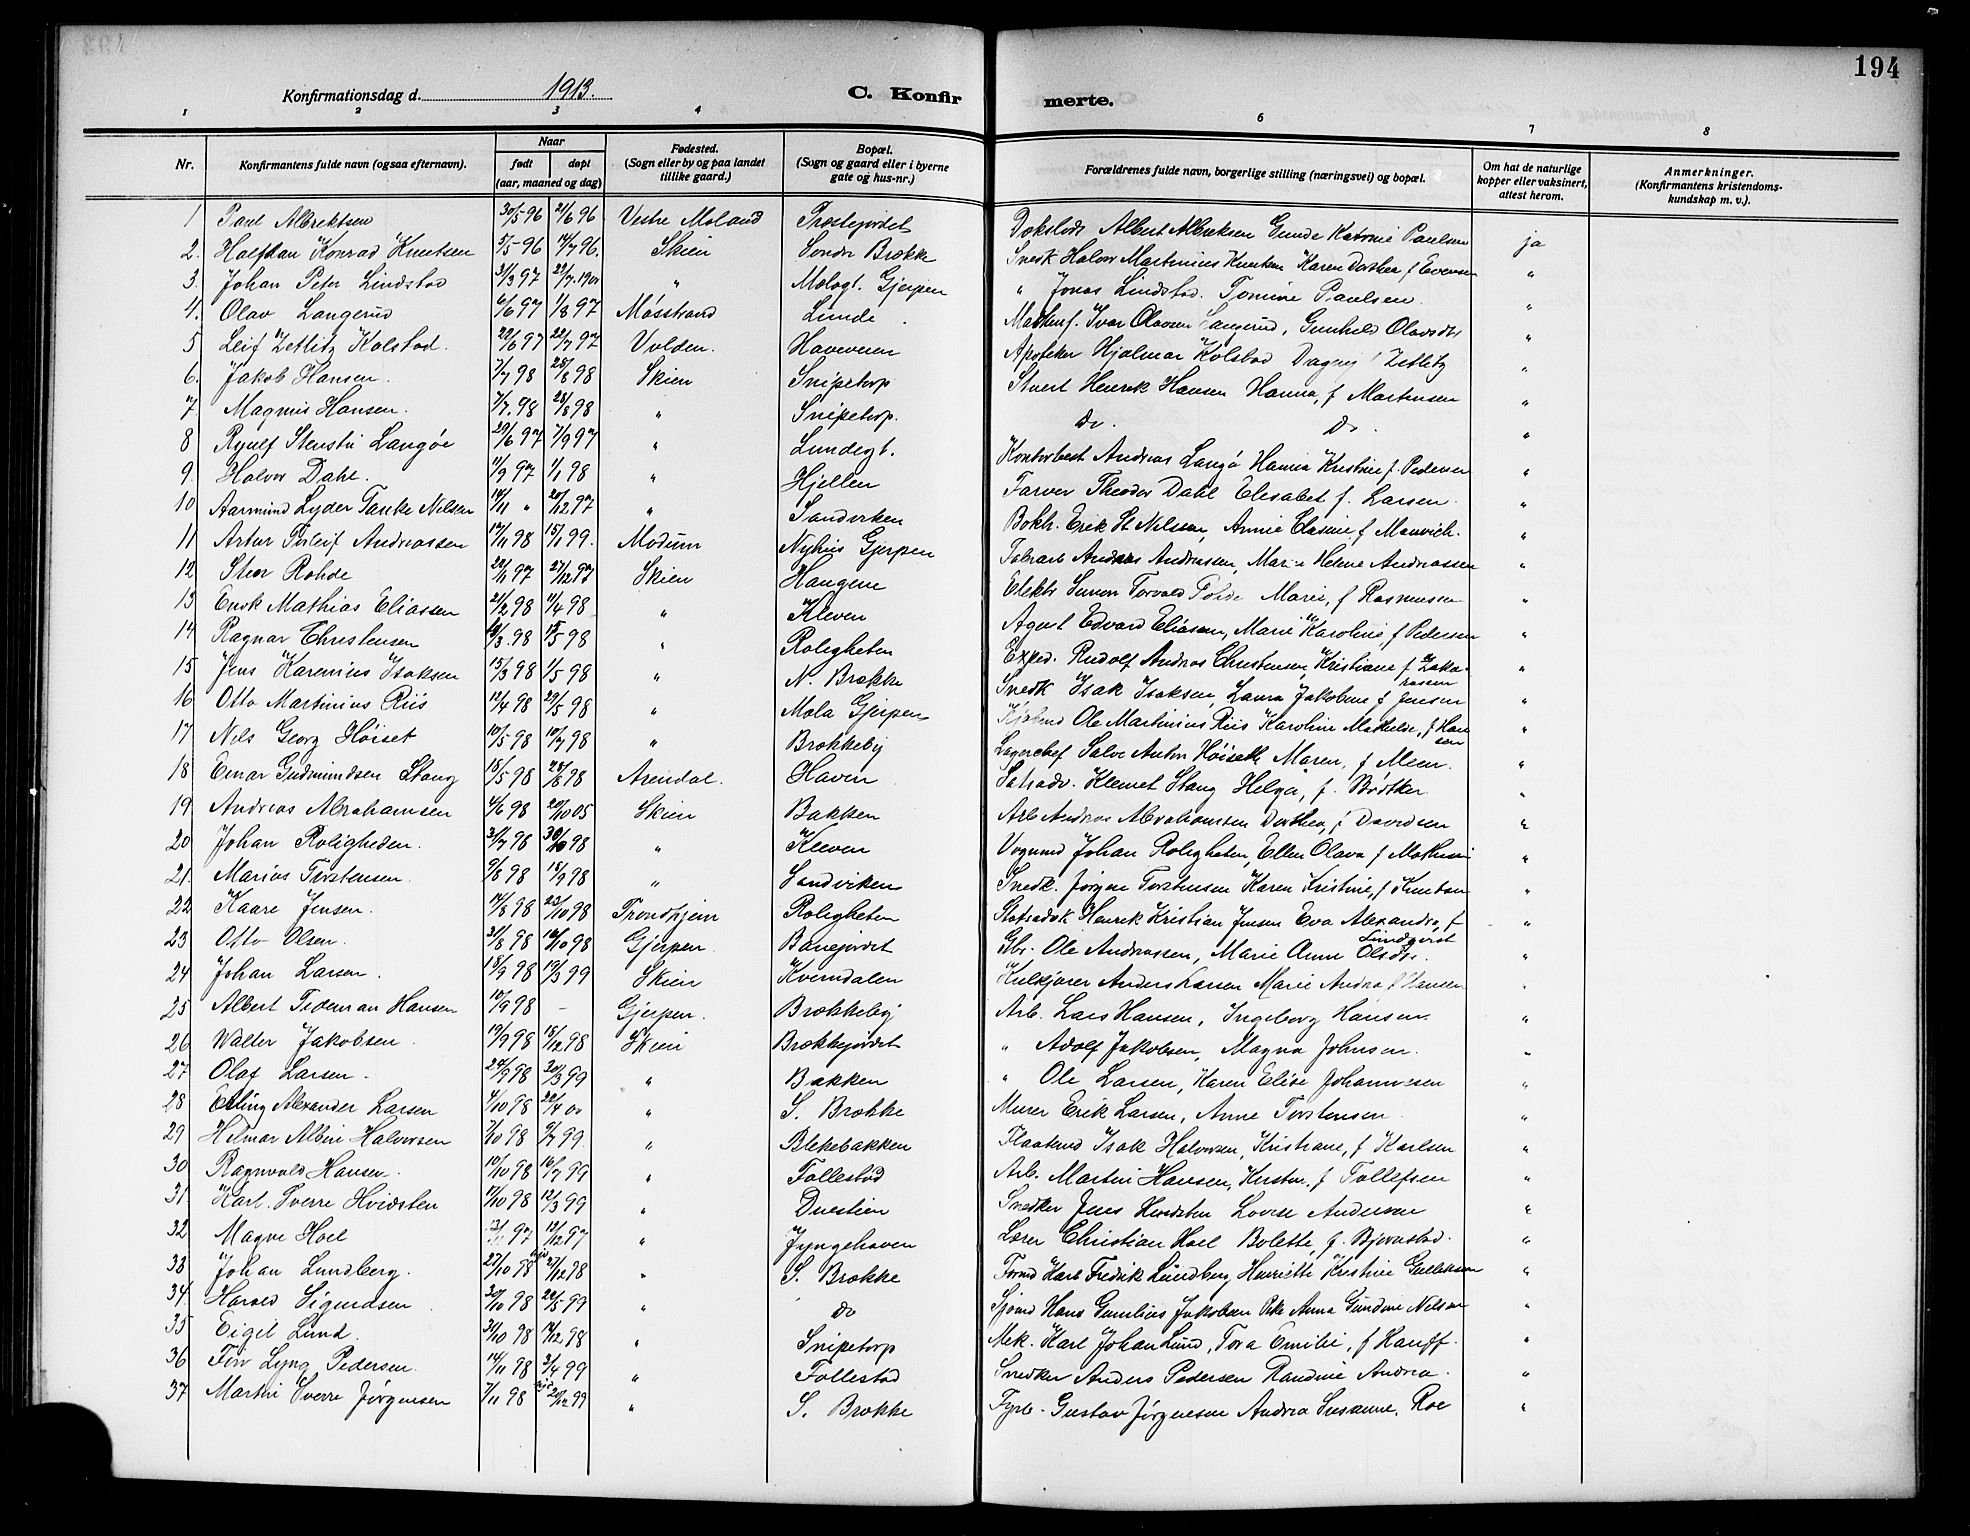 194
Konfirmationsdag d. 1913.
C. Konfirmerte.
1 2 3 4 6 7 8
Nr. Konfirmantens fulde navn (ogsaa efternavn). Naar født døpt (aar, maaned og dag) Fødested. (Sogn eller by og paa landet tillike gaard.) Bopæl. (Sogn og gaard eller i byerne gate og hus-nr.) Forældrenes fulde navn, borgerlige stilling (næringsvei) og bopæl. Om hat de naturlige kopper eller vaksinert, attest herom. Anmerkninger. (Konfirmantens kristendomskundskap m. v.).
1 Paul Albrektsen 30/5 96 21/6 96 Vestre Moland Prostejordet Albert Albreksen Gunda Katrine Paulsen ja
2. Halfdan Konrad Knutsen 5/5 96 14/7 96. Skien Søndre Brække Snedk Halvor Martinius Knutsen Karen Dorthea f Evensen "
3. Johan Peter Lindstad 31/3 97 22/7 1900 " Mælagt. Gjerpen " Jonas Lindstad. Tomine Paulsen "
4. Olav Langerud 6/6 97 1/8 97 Møsstrand Lunde Ivar Olavsen Langerud, Gunhild Olavsdtr "
5 Leif Zetlitz Kolstad. 22/6 97 22/7 97 Volden. Haveveien Apoteker Hjalmar Kolstad Dagny Zetlitz "
6. Jakob Hansen. 7/7 98 28/8 98 Skien Snipetorp Henrik Hansen Hanna, f Martensen "
7. Magnus Hansen. 7/7. 98 28/8 98 " Snipetorp. do. Do. "
8 Langøe 29/6 97 7/9 97 " Lundegt. Kontorbest Andreas Langø Hanna Kristine f. Pedersen "
9. Halvor Dahl. 11/9 97 1/1 98 " Hjellen Farver Theodor Dahl Elisabet f. Larsen "
10 Aarmund Lyder Tanke Nilsen 14/11 " 20/12 97 " Sandviken Bokh. Erik St Nilssen, Annie f "
11 Artur Torleif Andreassen 12/11 98 15/1 99. Modum Nyhus Gjerpen Andreas Andreassen, Marie Helene Andreassen "
12 Rohde 22/11 97 27/12 97 Skien Haugene Simon Torvald Rohde Marie, f Rasmussen "
13 Enok Mathias Eliassen 21/2 98 11/4 98 " Kleven Agent Edvard Eliasen, Marie Karoline f Pedersen "
14 Ragnar Christensen 98 98 " Roligheten Exped. Rudolf Andreas Christensen, Kristiane f Zakariassen "
15 Jens Karenius Isaksen 15/3 98 1/5 98 " N. Brække Snedk Isak Isaksen, Laura Jakobine f Jensen "
16 Otto Martinius Riis 12/4 98 29/5 98 " Mæla Gjerpen Ole Martinius Riis Karoline Mathilde, f Hansen "
17 Nils Georg Høiset 10/5 98 10/7 98 " Brækkeby Lagerchef Salve Anton Høiseth Maren, f Moen. "
18 Einar Gudmundsen Stang 18/5 98 28/8 98 Arendal. Haven Klemet Stang Helga, f. Bødtker "
19 Andreas Abrahamsen 4/6 98 20/10 05 Skien Bakken Arb Andreas Abrahamsen Dorthea, f Davidsen "
20 Johan Roligheden. 31/7 98 30/10 98 " Kleven Vognmd Johan Roligheten, Ellen Olava f "
21. Marius Torstensen. 9/8 98 18/9 98 " Sandviken Snedk. Jørgen Torstensen Karen Kristine, f Knutsen "
22 Kaare Jensen. 14/8 98 23/10 98 Trondhjem Roligheten Henrik Kristian Jensen Eva Alexandra, f Lundqvist "
23 Otto Olsen. 31/8 98 16/10 98 Gjerpen. Banejordet Gbr. Ole Andreassen, Marie Anne Olsdtr. "
24 Johan Larsen. 18/9 98 19/3 99 Skien Kverndalen Kulkjører Anders Larsen Marie Andrea f Hansen "
25 Albert Tideman Hansen 10/9 98 - Gjerpen. Brækkeby Arb. Lars Hansen, Ingeborg Hansen "
26 Walter Jakobsen 19/9 98 18/12 98 Skien Brækkejordet " Adolf Jakobsen, Magna Johnsen. "
27 Olaf Larsen. 24/9 98 30/3 99 " Bakken " Ole Larsen, Karen Elise Johannesen "
28 Erling Alexander Larsen 4/10 98 22/4 00 " S. Brække Murer Erik Larsen, Anne Torstensen "
29 Hilmar Albin Halvorsen 7/10 98 9/7 99. " Blekebakken Isak Halvorsen, Kristiane, f Karlsen "
30 Ragnvald Hansen. 10/10 98 16/7 99 " Follestad Arb. Martin Hansen, Kirsten, f Tollefsen "
31 Karl Sverre Hvidsten 17/10 98 12/3 99 " Duestien Snedker Jens Hvidsten Lovise Andersen "
32 Magne Hoel 97 12/12 97 " Jyngehaven Lærer Christian Hoel Bolette, f. Bjørnstad. "
33 Johan Lundberg. 27/10 98 27/12 98 " S. Brække Karl Fredrik Lundberg Henriette Kristine Gulliksen "
34 Harald Sigurdsen 30/10 98 22/5 99 " do Sjømd Hans Jakobsen Anna Gundine Nilsen "
35 Eigil Lund. 31/10 98 14/12 98 " Snipetorp Mek. Karl Johan Lund, Tora Emilie, f Hauff. "
36 Finn Lyng Pedersen. 14/11 98 3/4 99 " Follestad Snedker Anders Pedersen Randine Andrea. "
37 Martin Sverre Jørgensen 7/11 98 20/12 99 " S. Brække Fyrb. Gustav Jørgensen Andrea Susanne. Roe "